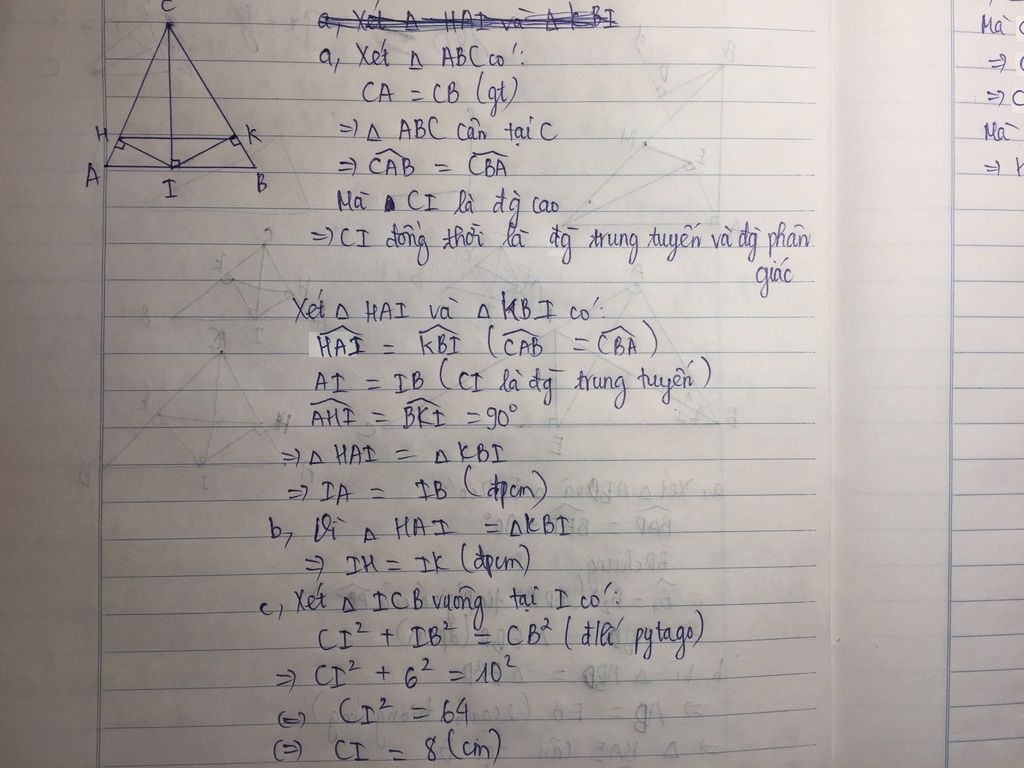 C
H
K
A
I
B
a, Xét Δ HAI và Δ KBI
a, Xét Δ ABC có:
CA = CB (gt)
⇒ Δ ABC cân tại C
⇒ \widehat{CAB} = \widehat{CBA}
Mà CI là đg cao
⇒ CI đồng thời là đg trung tuyến và đg phân
giác
Xét Δ HAI và Δ KBI có:
\widehat{HAI} = \widehat{KBI} (\widehat{CAB} = \widehat{CBA})
AI = IB (CI là đg trung tuyến)
\widehat{AHI} = \widehat{BKI} = 90°
⇒ Δ HAI = Δ KBI
⇒ IA = IB (đpcm)
b, Vì Δ HAI = Δ KBI
⇒ IH = IK (đpcm)
c, Xét Δ ICB vuông tại I có:
CI² + IB² = CB² (đlí pytago)
⇒ CI² + 6² = 10²
(=) CI² = 64
(=) CI = 8 (cm)
Mà
⇒
⇒ C
Mà
⇒